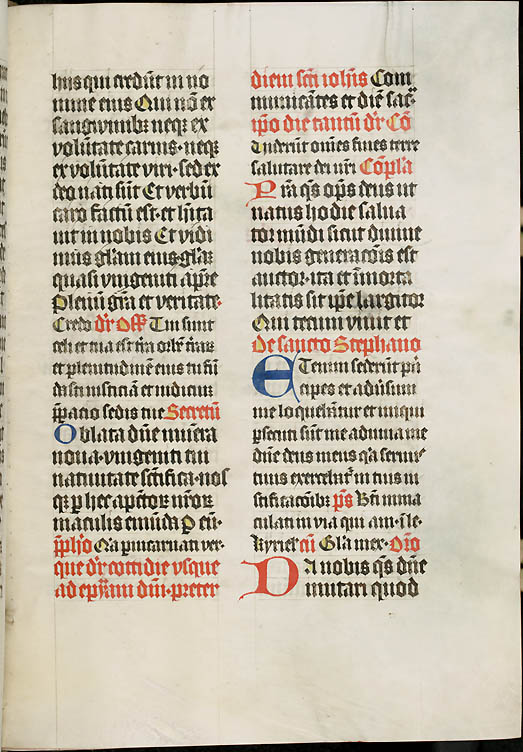 hus qui credūt in no
mine eius Qui nō ex
sanguinibꝫ neqꝫ ex
volūtate carnis · neqꝫ
ex volūtate viri · sed ex
deo nati sūt Et verbū
caro factū est · et hīta
uit in nobis Et vidi
mus glām eius · glāꝫ
quasi vnigeniti a pr̄e
Plenū grā et veritate ·
Credo dr̄ Off Tui sunt
celi et tua est tr̄a orbē tr̄aꝝ
et plenitudinē eius tu fū
dasti iusticiā et iudiciū
p̄patio sedis tue Secretū
Oblata dn̄e mūera
noua · vnigeniti tui
natiuitate sc̄tifica · nos
qꝫ p hec a pctōꝝ nr̄oꝝ
maculis emūda P eū ·
p̄plio Qꝛ p incarnati ver ·
que dr̄ cottidie vsque
ad epyam dm̄ · preter
diem sc̄ti ioh̄is Com
municātes et diē sac̄
ip̄o die tantū dr̄ Cō
Uiderūt om̄es fines terre
salutare dei nr̄i Cōpl̄a
Pr̄a qs̄ op̄s deus ut
natus hodie salua
tor mūdi sicut diuine
nobis generatōis est
auctor · ita et īmorta
litatis sit ip̄e largitor
Qui tecum viuit et
De sancto Stephano
Etenim sederūt p̄n
cipes et adūsum
me loquebātur et iniqui
p̄secuti sūt me adiuua me
dn̄e deus meus qꝛ seruꝰ
tuus exercebatꝛ in tuis iu
stificacōibꝫ p̄s Bt̄i inma
culati in via qui am · ī le ·
Kyriel̄ cū Gl̄a in ex · Orō
Da nobis qs̄ dn̄e
imitari quod